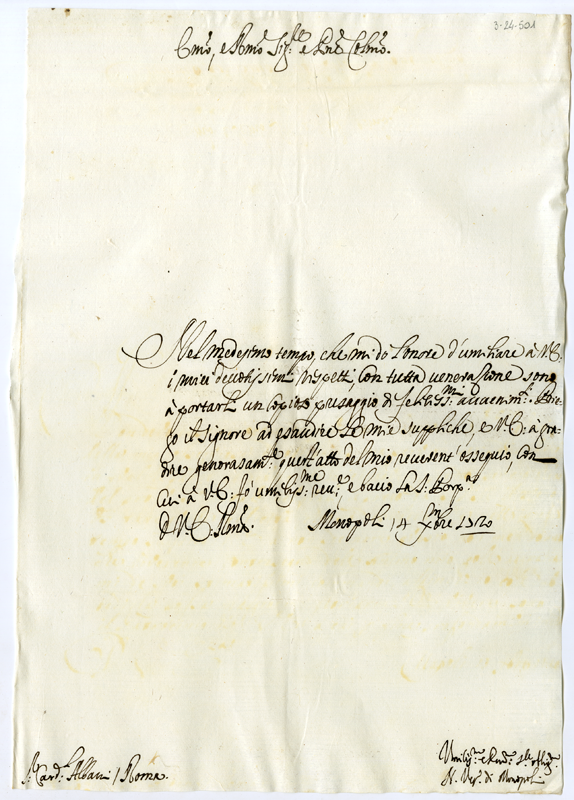 3-24-501
Em̃o, e Rm̃o Sig.re e Prõe Colm̃o.
Nel medesimo tempo, che mi do l'onore d'umiliare à V.E.
i miei devotissimi rispetti con tutta venerazione sono
à portarli un copioso presaggio di feliciss.mi avvenim.ti. Prie-
go il Signore ad esaudire le mie suppliche, e V.E. a gra-
dire generosam.te quest'atto del mio reverent' ossequio, con
cui à V.E. fò umiliss.me rev.e, e bacio la S. Porp.a
D V.E. Rm̃a. Monopoli 14 Xm̃bre 1720
S.r Card.l Albani / Roma.
Umiliss.o e Rev.o
N. Ves.o di Monopoli